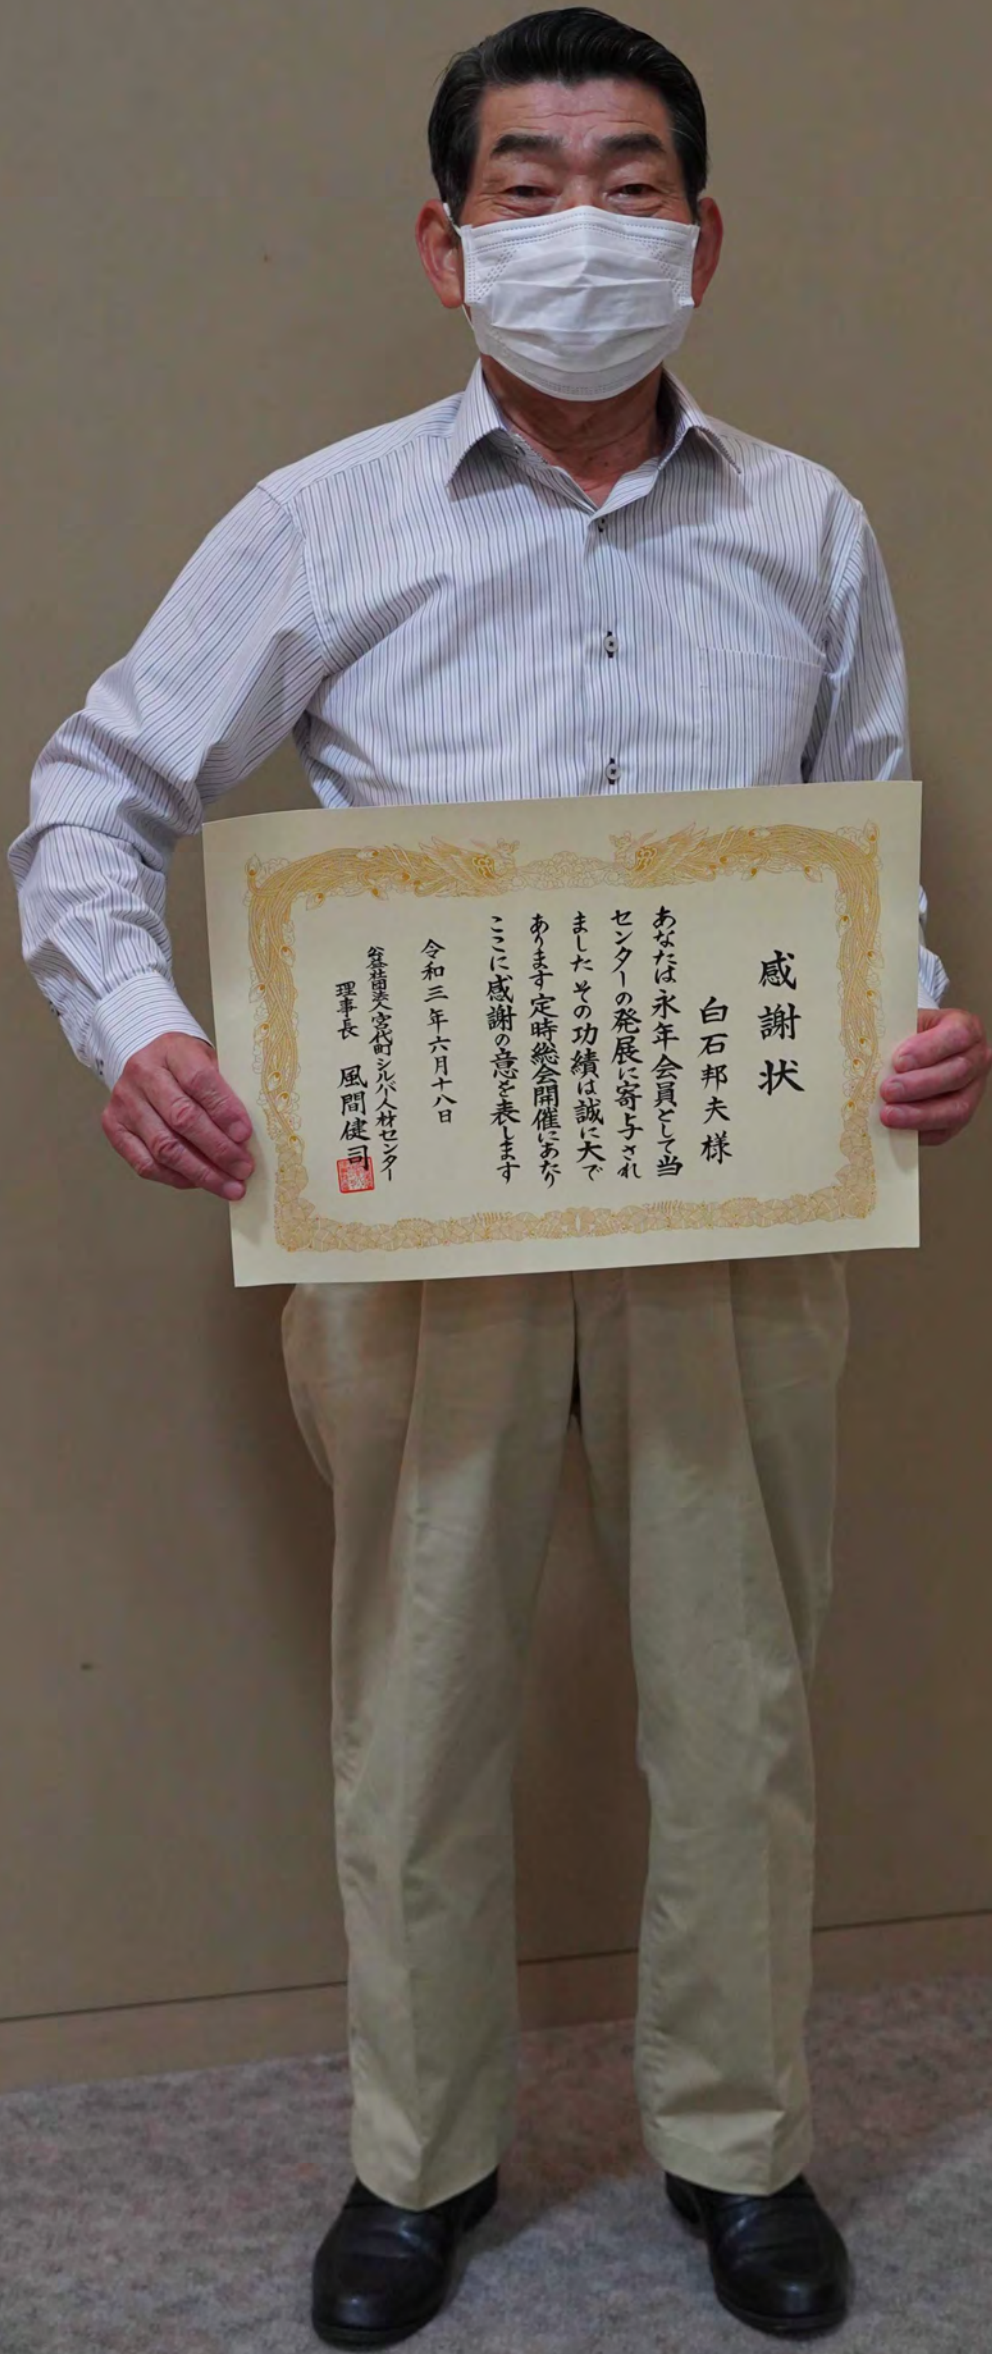 感謝状
白石邦夫様
あなたは永年会員として当
センターの発展に寄与され
ました その功績は誠に大で
あります 定時総会開催にあたり
ここに感謝の意を表します
令和三年六月十八日
公益社団法人宮代町シルバー人材センター
理事長 風間健司